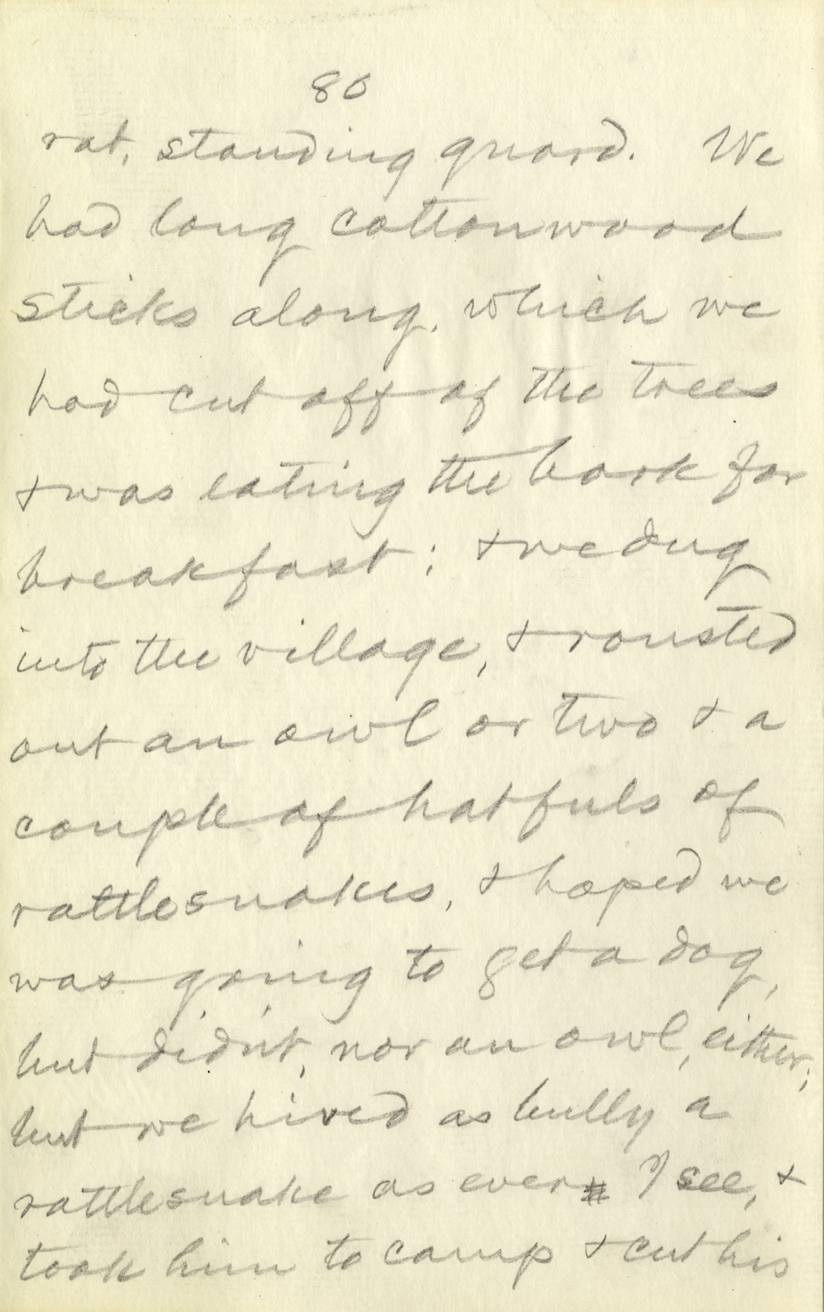 80
rat, standing guard. We
had long cottonwood
sticks along, which we
had cut off of the trees
& was eating the bark for
breakfast; & we dug
into the village, & rousted
out an owl or two & a
couple of hatfuls of
rattlesnakes, & hoped we
was going to get a dog,
but didn't, nor an owl, either;
but we hived as bully a
rattlesnake as ever I see, &
took him to camp & cut his